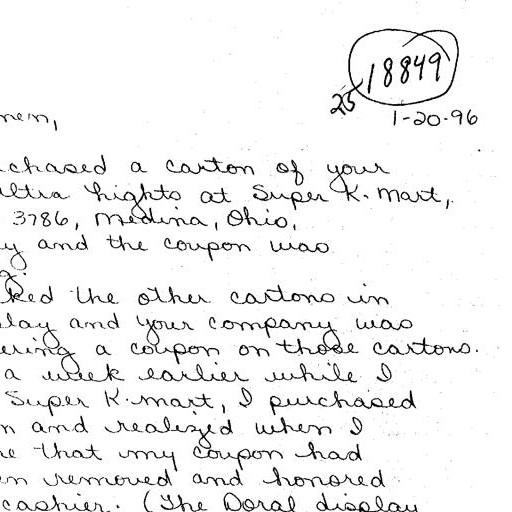 18849
25
1-20-96
men,
chased a carton of your
ltra Lights at Super K-Mart,
3786, Medina, Ohio.
y and the coupon was
g.
ked the other cartons in
lay and your company was
ering a coupon on those cartons.
a week earlier while I
Super K-mart, I purchased
n and realized when I
me that my coupon had
en removed and honored
cashier. (The Doral display